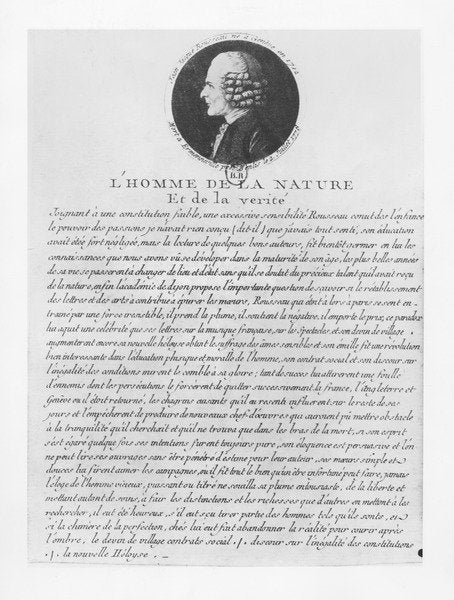 Jean Jaques Rousseau né à Genève en 1712
Mort à Ermenonville près Senlis le 2 Juillet 1778
B.R
L'HOMME DE LA NATURE
Et de la verité
Joignant à une constitution faible, une excessive sensibilité Rousseau conut dès l'enfance
le pouvoir des passions je navait rien conçu (dit-il) que j'avais tout senti, son éducation
avait étéé fort négligée, mais la lecture de quelques bons auteurs, fit bientôt germer en lui les
connaissances que nous avons vû se déveloper dans la maturité de son âge, les plus belles années
de sa vie se passerent à changer de lieu et détat sans qu'il se doutat du précieux talent quil avait reçu
de la nature, enfin lacadémie de dijon propose l'importante question de savoir si le rétablissement
des lettres et des arts à contribué à épurer les mœurs, Rousseau qui était à lors à paris se sent en-
traîné par une force irresistible, il prend la plume, il soutient la négative, il emporte le prix, ce paradoxe
lui aquit une célébrité que ses lettres sur la musique française, sur les Spectacles, et son devin de village
augmenterent encore sa nouvelle héloyse obtint le suffrage des âmes sensibles et son émille fit une révolution
bien interessante dans l'éducation phisique et moralle de l'homme, son contrat social et son discour sur
l'inégalité des conditions mirent le comble à sa gloire; tant de succès lui attirerent une foulle
d'ennemis dont les persécutions le forcèrent de quitter successivement la france, l'angleterre et
Genève ou il étoit retourné, les chagrins cuisants qu'il en resenti influerent sur le reste de ses
jours et l'empêcherent de produire de nouveaux chef-d'œuvres qui auroient pû mettre obstacle
à la tranquilité qu'il cherchait et qu'il ne trouva que dans les bras de la mort; si son esprit
s'est égaré quelque fois ses intentions furent toujours pure, son éloquence est persuasive et l'on
ne peut lire ses ouvrages sans être pénétré d'éstime pour leur autour, ses mœurs simples et
douces lui firent aimer les campagnes, où il fit tout le bien qu'un être infortuné peut faire, jamais
l'éloge de l'homme vicieux, puissant ou titré ne souilla sa plume entousiaste, de la liberté et
mettant autant de soins, à fair les distinctions et les richesses que d'autres en mettent à les
rechercher, il eut été heureux, s'il eut sçu tirer partie des hommes tels quils sonts, et
si la chimère de la perfection, chés lui eut fait abandonner la réalité pour courir après
l'ombre, le devin de village contrats social .|. discour sur l'inégalité des constitutions
.|. la nouvelle Héloyse. _